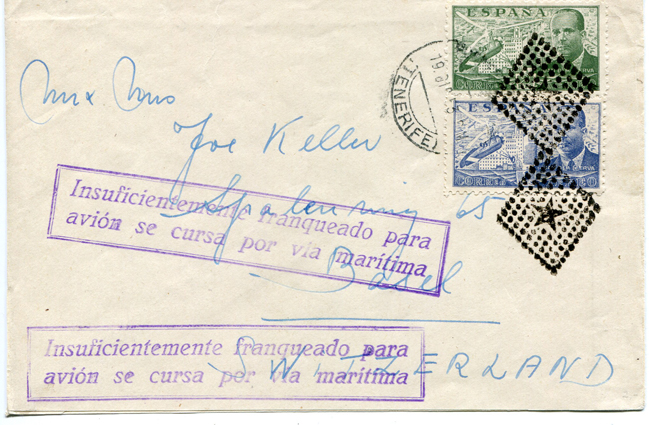 ESPAÑA
CORREO
ESPAÑA
CORREO
(TENERIFE)
Mr x Mrs
Joe Keller
65
Basel
SWITZERLAND
Insuficientemente franqueado para
avión se cursa por vía marítima
Insuficientemente franqueado para
avión se cursa por vía marítima